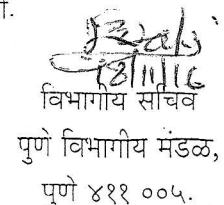 विभागीय सचिव
पुणे विभागीय मंडळ,
पुणे ४११ ००५.